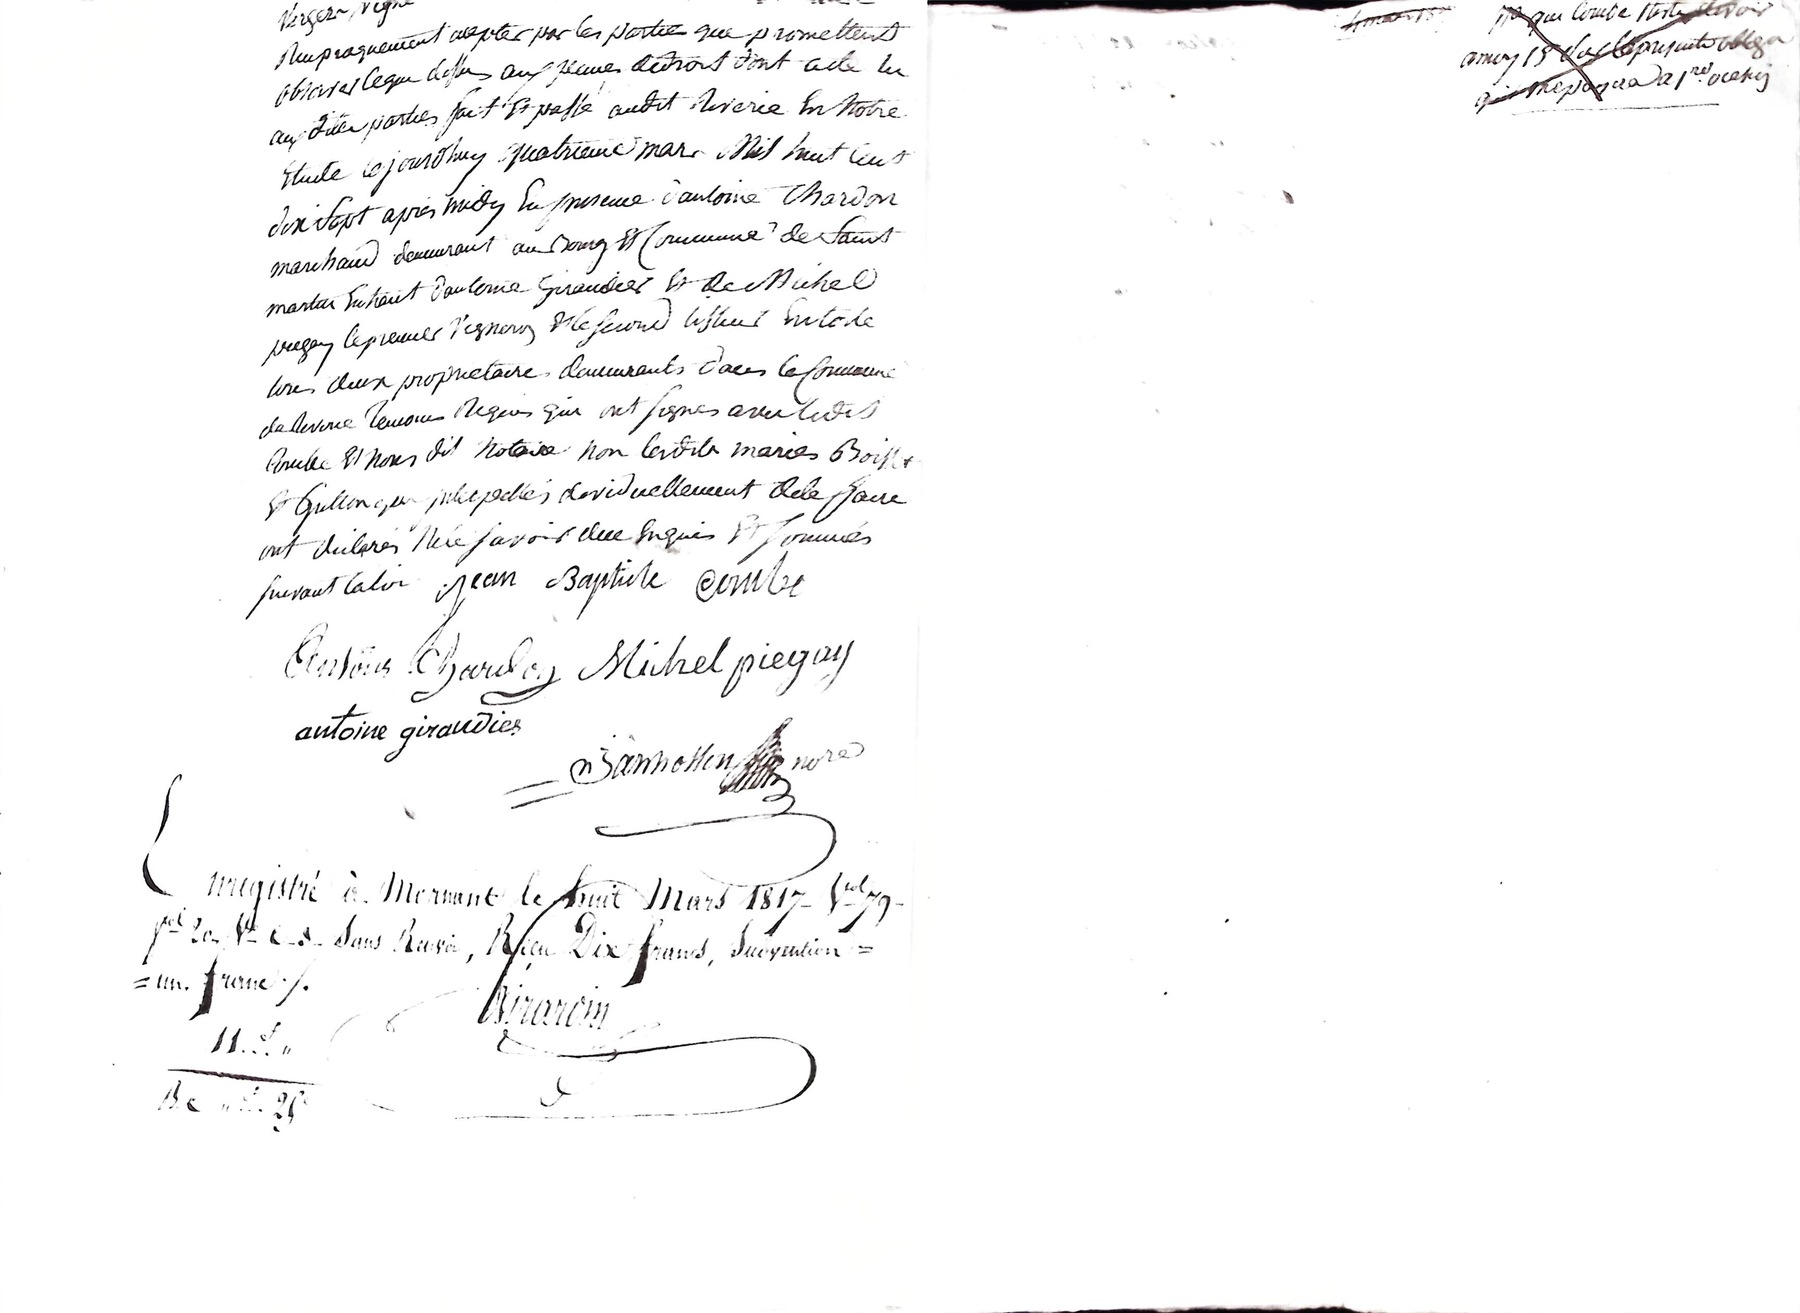 verger vigne
Réciproquement acepter par les parties que promettent
observer leque dessus aux peines de droit dont acte lu
aux dites parties fait et passé audit Riverie En Notre
Etude cejourdhuy quatrieme mars Mil huit Cent
dix Sept apres midy En presence d'antoine Chardon
marchand demeurant au Bourg et Commune de Saint
martin Enhaut d'antoine Giraudier et de Michel
piegay le premier vigneron et le second tisseur En toile
tous deux proprietaires demeurants dans la Commune
de Riverie temoins Requis qui ont signés avec ledit
Combe et nous dit Notaire non lesdits maries Boiss
et Gullon qui interpellés dividuellement de le faire
ont déclarés Ne le savoir due Enquis et sommés
suivant la loi Jean Baptiste Combe
Antoine Chardon Michel piegay
antoine giraudier
nore
Enregistré à Mornant le huit Mars 1817 Vol 79
fol 20 Vo C. 8. Sans Renvoi, Reçu Dix francs, Subvention =
= un franc /.
Girardin
11. f. "
25
4 mars 1817
que Combe Reste devoir
la presente obliga